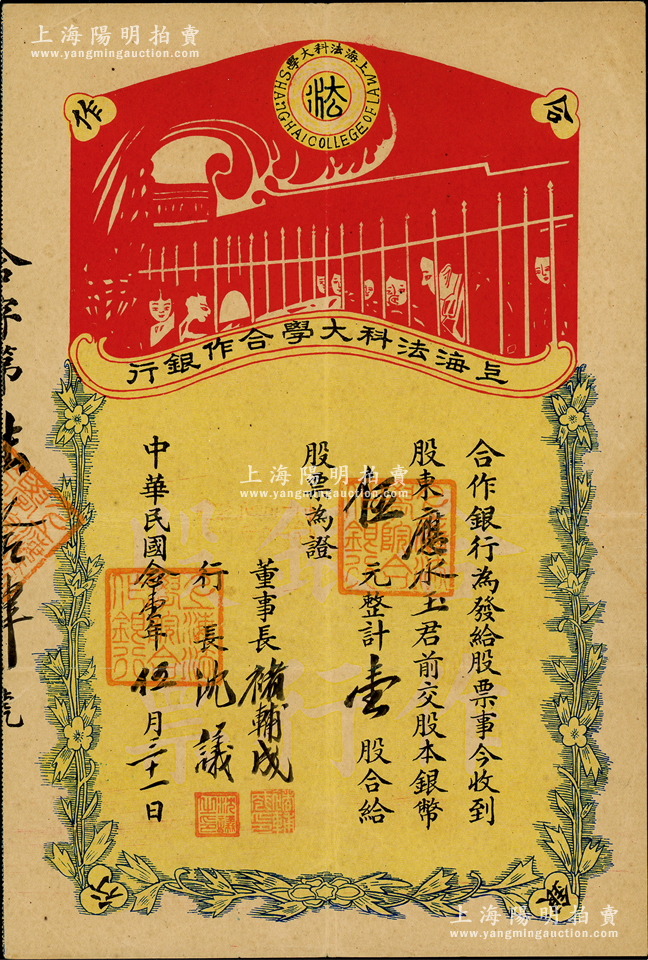 上海陽明拍賣
www.yangmingauction.com
上海法科大學
SHANGHAI COLLEGE OF LAW
法
合
作
銀
行
上海法科大學合作銀行
合作銀行為發給股票事今收到
股東應君前交股本銀幣
伍元整計壹股合給
股票為證
董事長褚輔成
行長沈議
中華民國念年伍月二十一日
合字第號
沈議之印
上海陽明拍賣
www.yangmingauction.com
上海陽明拍賣
www.yangmingauction.com